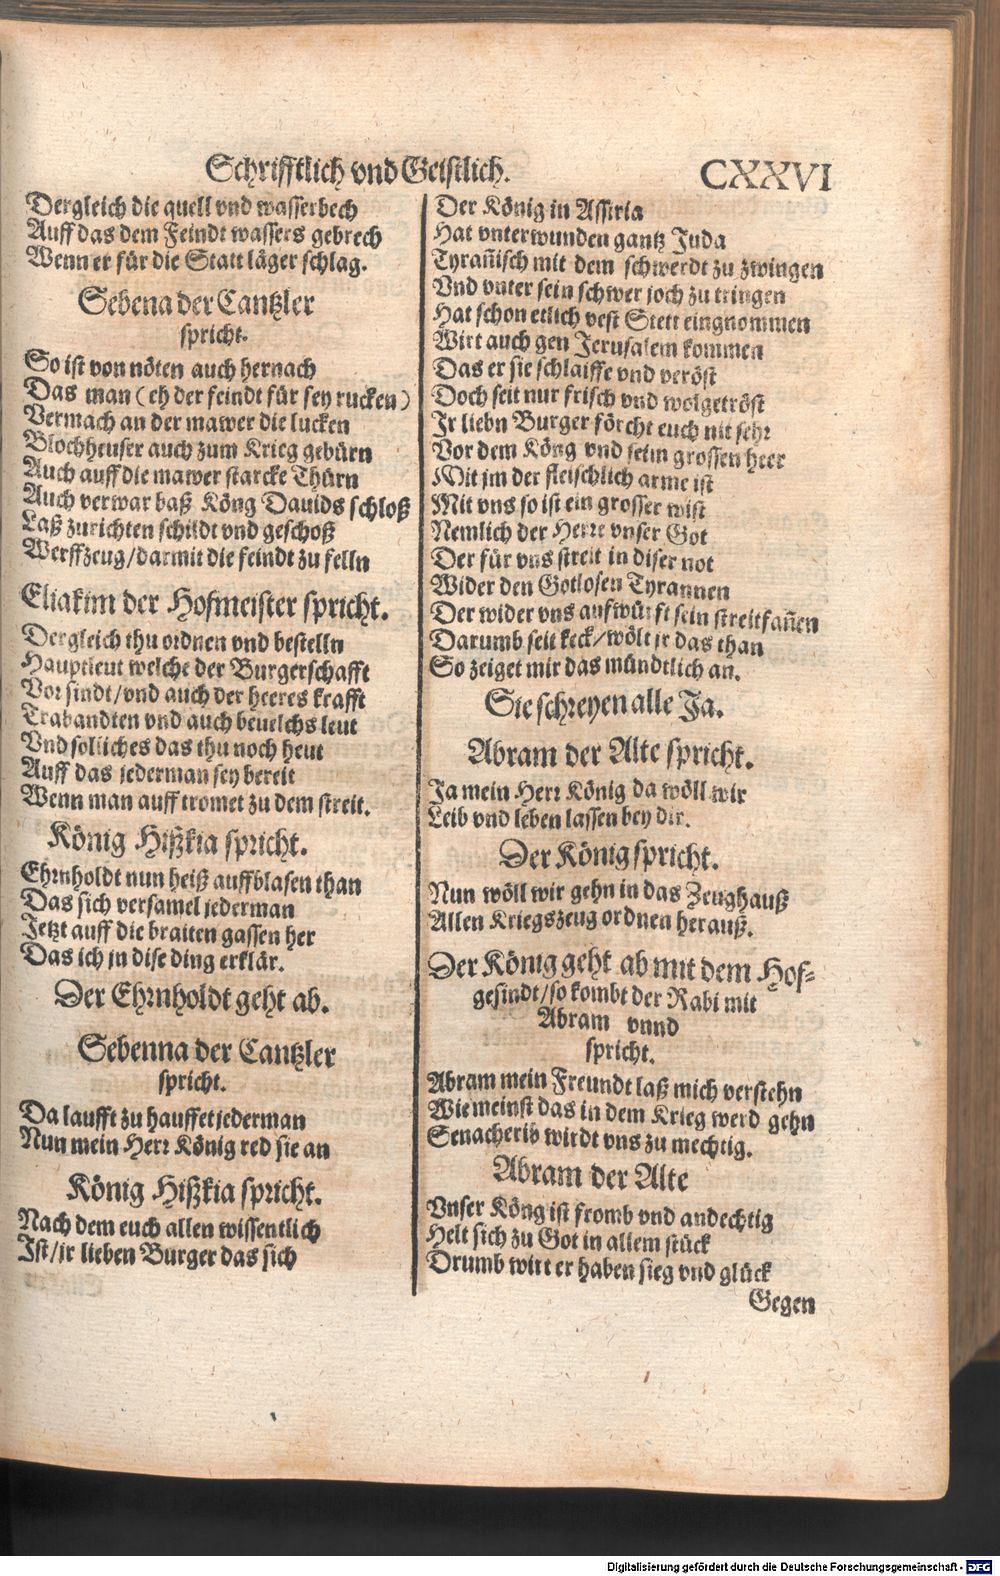 Schrifftlich vnd Geistlich. CXXVI
Dergleich die quell vnd wasserbech
Auff das dem Feindt wassers gebrech
Wenn er für die Statt läger schlag.
Sebena der Cantzler
spricht.
So ist von nöten auch hernach
Das man (eh der feindt für sey rucken)
Vermach an der mawer die lucken
Blochheuser auch zum Krieg gebürn
Auch auff die mawer starcke Thürn
Auch verwar baß Köng Dauids schloß
Laß zurichten schildt vnd geschoß
Werffzeug/darmit die feindt zu felln
Eliakim der Hofmeister spricht.
Dergleich thu ordnen vnd bestelln
Hauptleut welche der Burgerschafft
Vor sindt/vnd auch der heeres krafft
Trabandten vnd auch beuelchs leut
Vnd solliches das thu noch heut
Auff das jederman sey bereit
Wenn man auff tromet zu dem streit.
König Hißkia spricht.
Ehrnholdt nun heiß auffblasen than
Das sich versamel jederman
Jetzt auff die braiten gassen her
Das ich jn dise ding erklär.
Der Ehrnholdt geht ab.
Sebenna der Cantzler
spricht.
Da laufft zu hauffet jederman
Nun mein Herr König red sie an
König Hißkia spricht.
Nach dem euch allen wissentlich
Ist/jr lieben Burger das sich
Der König in Assiria
Hat vnterwunden gantz Juda
Tyrañisch mit dem schwerdt zu zwingen
Vnd vnter sein schwer joch zu tringen
Hat schon etlich vest Stett eingnommen
Wirt auch gen Jerusalem kommen
Das er sie schlaiffe vnd veröst
Doch seit nur frisch vnd wolgetröst
Ir liebn Burger förcht euch nit sehr
Vor dem Köng vnd seim grossen heer
Mit jm der fleischlich arme ist
Mit vns so ist ein grosser wist
Nemlich der Herre vnser Got
Der für vns streit in diser not
Wider den Gotlosen Tyrannen
Der wider vns aufwürft sein streitfañen
Darumb seit keck/wölt jr das than
So zeiget mir das mündtlich an.
Sie schreyen alle Ja.
Abram der Alte spricht.
Ja mein Herr König da wöll wir
Leib vnd leben lassen bey dir.
Der König spricht.
Nun wöll wir gehn in das Zeughauß
Allen Kriegszeug ordnen herauß.
Der König geht ab mit dem Hof⸗
gesindt/so kombt der Rabi mit
Abram vnnd
spricht.
Abram mein Freundt laß mich verstehn
Wie meinst das in dem Krieg werd gehn
Senacherib wirdt vns zu mechtig.
Abram der Alte
Vnser Köng ist fromb vnd andechtig
Helt sich zu Got in allem stück
Drumb wirt er haben sieg vnd glück
Gegen
Digitalisierung gefördert durch die Deutsche Forschungsgemeinschaft - DFG